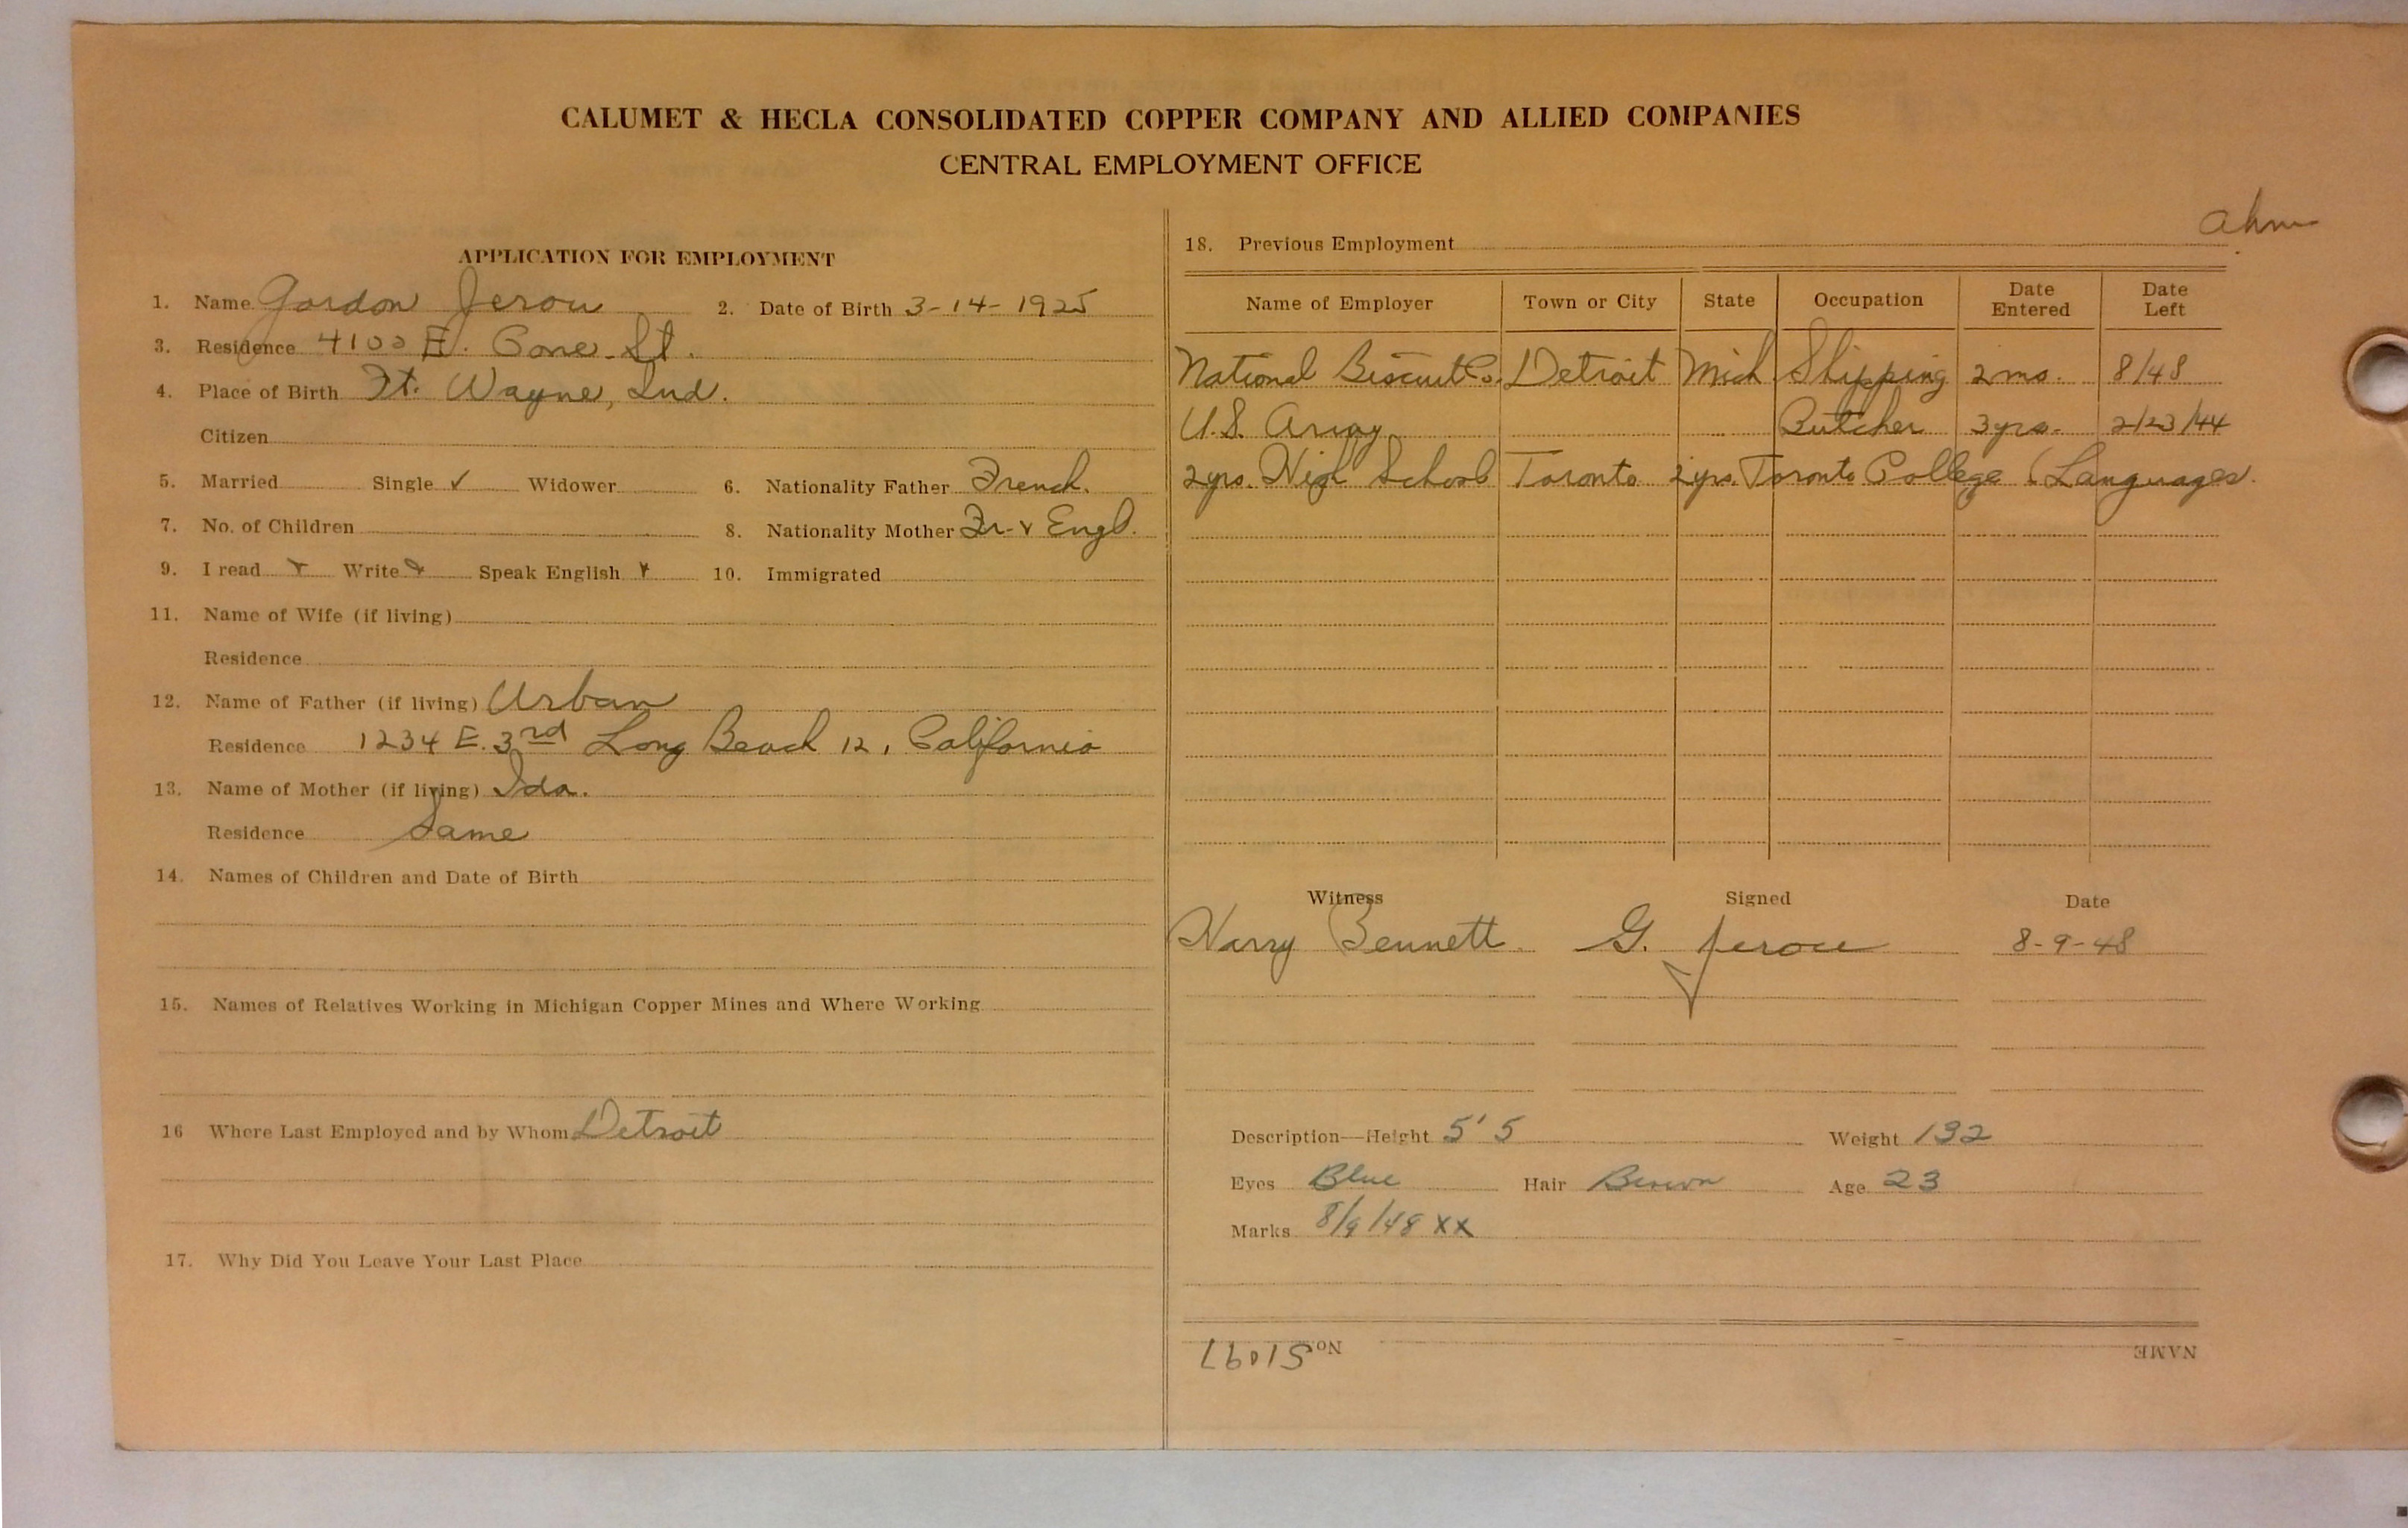 CALUMET & HECLA CONSOLIDATED COPPER COMPANY AND ALLIED COMPANIES
CENTRAL EMPLOYMENT OFFICE
APPLICATION FOR EMPLOYMENT
1. Name Gordon Jerou 2. Date of Birth 3-14-1925
3. Residence 4100 E. St.
4. Place of Birth Ft. Wayne, Ind.
Citizen
5. Married Single ✓ Widower 6. Nationality Father French.
7. No. of Children 8. Nationality Mother Fr- & Engl.
9. I read Write Speak English 10. Immigrated
11. Name of Wife (if living)
Residence
12. Name of Father (if living) Urban
Residence 1234 E. 3rd Long Beach 12, California
13. Name of Mother (if living) Ida.
Residence Same
14. Names of Children and Date of Birth
15. Names of Relatives Working in Michigan Copper Mines and Where Working
16 Where Last Employed and by Whom Detroit
17. Why Did You Leave Your Last Place
18. Previous Employment
Name of Employer Town or City State Occupation Date Entered Date Left
National Biscuit Co. Detroit Mich Shipping 2 mo. 8/48
U.S. Army Butcher 3 yrs. 2/23/44
2 yrs. High School Toronto 2 yrs. Toronto College (Languages.
Witness Signed Date
Harry Bennett G. Jerou 8-9-48
Description—Height 5'5 Weight 132
Eyes Blue Hair Brown Age 23
Marks 8/9/48 XX
NAME No. 51097